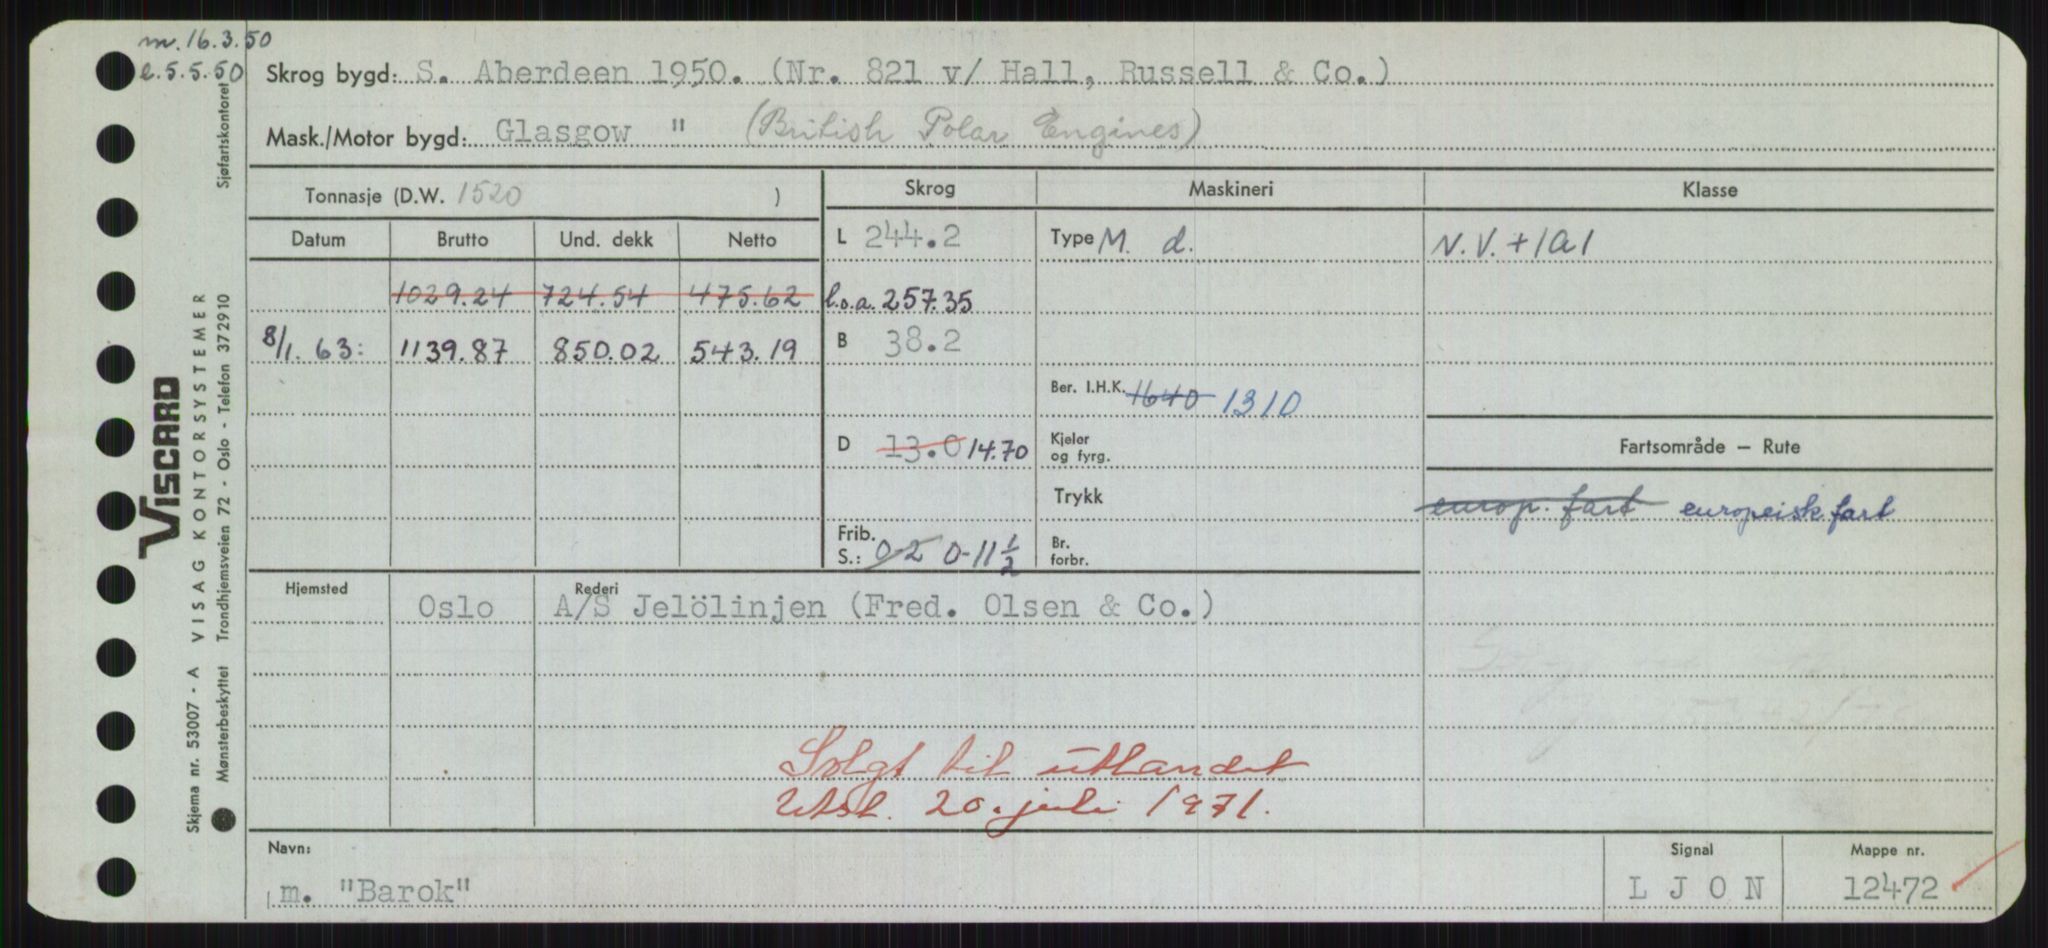 m. 16.3.50
e. 5.5.50
Skrog bygd: S. Aberdeen 1950. (Nr. 821 v/ Hall, Russell & Co.)
Mask./Motor bygd: Glasgow " (British Polar Engines)
Tonnasje (D.W. 1520 )
Skrog Maskineri Klasse
Datum Brutto Und. dekk Netto
L 244.2 Type M. d. N.V. + 1A1
1029.24 724.54 475.62 l.o.a. 257.35
8/1. 63: 1139.87 850.02 543.19 B 38.2
Ber. I.H.K. 1640 1310
D 13.0 14.70 Kjeler og fyrg. Fartsområde — Rute
Trykk europ. fart europeisk fart
Frib. S.: 0-2 0-11 1/2 Br. forbr.
Hjemsted Rederi
Oslo A/S Jelölinjen (Fred. Olsen & Co.)
Solgt til utlandet
Utsl. 20. juli 1971.
Navn: Signal Mappe nr.
m. "Barok" L J O N 12472
Sjøfartskontoret
VISCARD
Skjema nr. 53007 - A VISAG KONTORSYSTEMER
Mønsterbeskyttet Trondhjemsveien 72 - Oslo - Telefon 372910